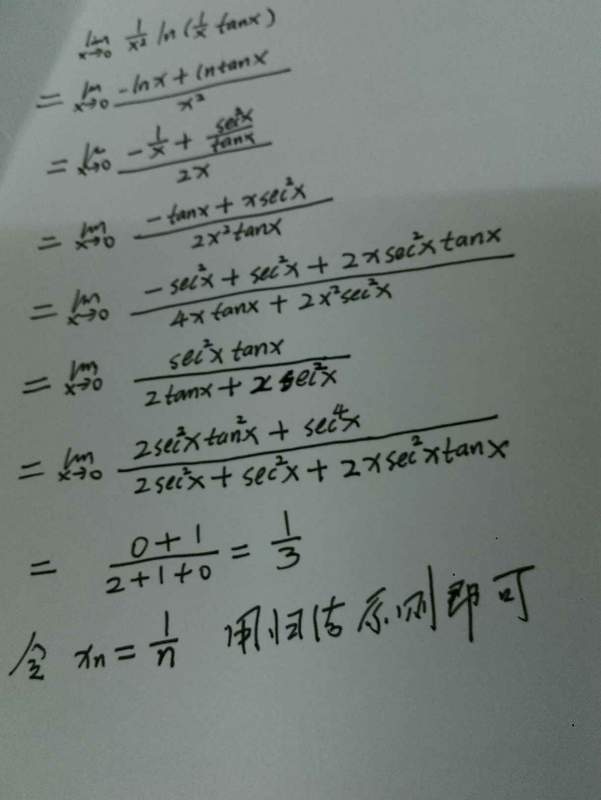 lim x→0 1/x² ln(1/x tanx)
= lim x→0 (-lnx + lntanx)/x²
= lim x→0 (-1/x + sec²x/tanx)/2x
= lim x→0 (-tanx + xsec²x)/(2x²tanx)
= lim x→0 (-sec²x + sec²x + 2xsec²xtanx)/(4xtanx + 2x²sec²x)
= lim x→0 (sec²xtanx)/(2tanx + xsec²x)
= lim x→0 (2sec²xtan²x + sec⁴x)/(2sec²x + sec²x + 2xsec²xtanx)
= (0+1)/(2+1+0) = 1/3
令 xn = 1/n 用归结原则即可